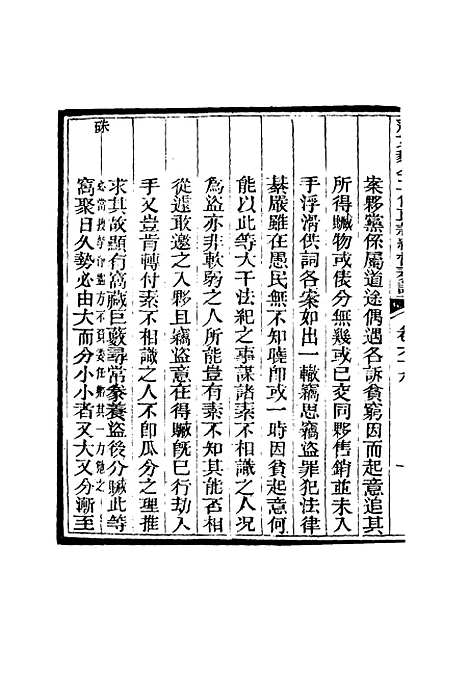 案夥黨係屬道途偶遇各訴貧窮因而起意追其
所得贓物或俵分無幾或已交同夥售銷並未入
手浮滑供詞各案如出一轍竊思竊盜罪犯法律
綦嚴雖在愚民無不知曉即或一時因貧起意何
能以此等大干法紀之事謀諸素不相識之人况
為盜亦非軟弱之人所能豈有素不知其能否相
從遽敢邀之入夥且竊盜意在得贓既已行劫入
手又豈肯轉付素不相識之人不即瓜分之理推
求其故顯有窩藏巨藪尋常豢養盜後分贓此等
窩聚日久勢必由大而分小小者又大又分漸至
硃